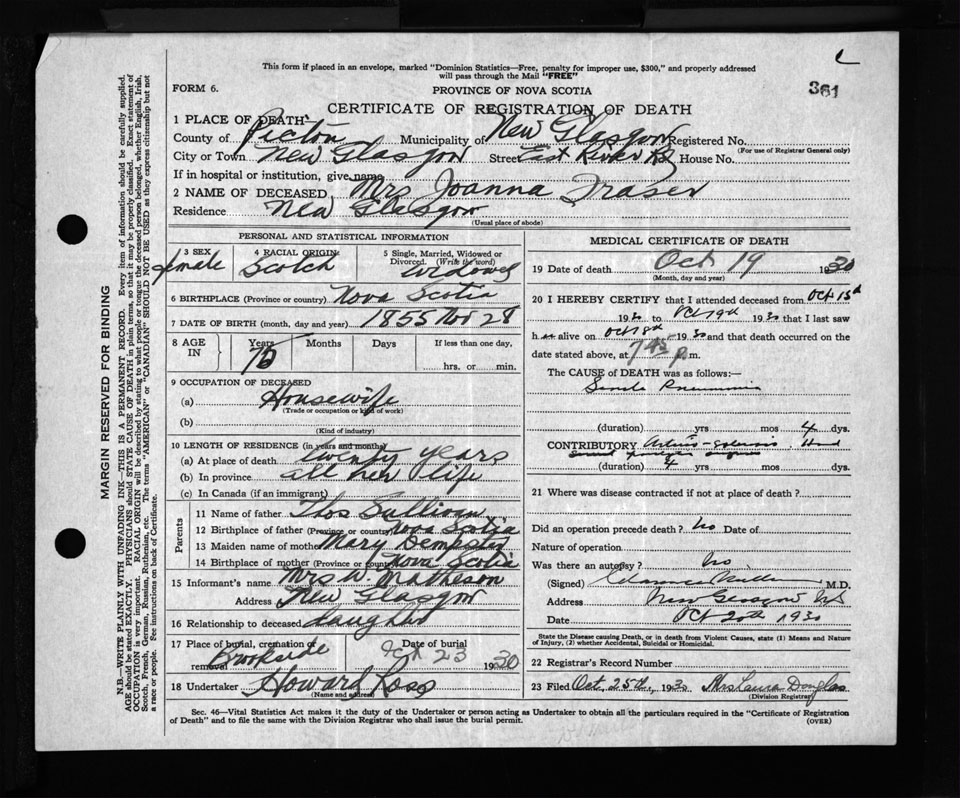 This form if placed in an envelope, marked "Dominion Statistics—Free, penalty for improper use, $300," and properly addressed
will pass through the Mail "FREE"
FORM 6.
PROVINCE OF NOVA SCOTIA
361
CERTIFICATE OF REGISTRATION OF DEATH
1 PLACE OF DEATH
County of Pictou Municipality of New Glasgow Registered No.
(For use of Registrar General only)
City or Town New Glasgow Street East River Rd House No.
If in hospital or institution, give name
2 NAME OF DECEASED Mrs Joanna Fraser
Residence New Glasgow
(Usual place of abode)
MARGIN RESERVED FOR BINDING
N.B.—WRITE PLAINLY WITH UNFADING INK—THIS IS A PERMANENT RECORD. Every item of information should be carefully supplied.
AGE should be stated EXACTLY. PHYSICIANS should STATE CAUSE OF DEATH in plain terms, so that it may be properly classified. Exact statement of
OCCUPATION is very important. RACIAL ORIGIN will be described by stating to what people or tongue the deceased person belonged, whether English, Irish,
Scotch, French, German, Russian, Ruthenian, etc. The terms "AMERICAN" or "CANADIAN" SHOULD NOT BE USED as they express citizenship but not
a race or people. See instructions on back of Certificate.
PERSONAL AND STATISTICAL INFORMATION
3 SEX female
4 RACIAL ORIGIN Scotch
5 Single, Married, Widowed or
Divorced. (Write the word)
widowed
6 BIRTHPLACE (Province or country) Nova Scotia
7 DATE OF BIRTH (month, day and year) 1855 Nov 28
8 AGE IN Years 75 Months Days If less than one day,
hrs. or min.
9 OCCUPATION OF DECEASED
(a) Housewife
(Trade or occupation or kind of work)
(b)
(Kind of industry)
10 LENGTH OF RESIDENCE (in years and months)
(a) At place of death twenty years
(b) In province all her life
(c) In Canada (if an immigrant)
Parents
11 Name of father Thos Sullivan
12 Birthplace of father (Province or country) Nova Scotia
13 Maiden name of mother Mary
14 Birthplace of mother (Province or country) Nova Scotia
15 Informant's name Mrs W. Matheson
Address New Glasgow
16 Relationship to deceased daughter
17 Place of burial, cremation or
removal Brookside
Date of burial
Oct 23 1930
18 Undertaker Howard Ross
(Name and address)
MEDICAL CERTIFICATE OF DEATH
19 Date of death Oct 19 1930
(Month, day and year)
20 I HEREBY CERTIFY that I attended deceased from Oct 15th
1930 to Oct 19th 1930 that I last saw
h er alive on Oct 18th 1930 and that death occurred on the
date stated above, at 7.45 p.m.
The CAUSE of DEATH was as follows:—
Senile Pneumonia
(duration) yrs mos 4 dys.
CONTRIBUTORY
(duration) 4 yrs mos dys.
21 Where was disease contracted if not at place of death?
Did an operation precede death? no Date of
Nature of operation
Was there an autopsy? no
(Signed) M.D.
Address New Glasgow NS
Date Oct 20th 1930
State the Disease causing Death, or in death from Violent Causes, state (1) Means and Nature
of Injury, (2) whether Accidental, Suicidal or Homicidal.
22 Registrar's Record Number
23 Filed Oct. 25th, 1930 Mrs Laura Douglas
(Division Registrar)
Sec. 46—Vital Statistics Act makes it the duty of the Undertaker or person acting as Undertaker to obtain all the particulars required in the "Certificate of Registration
of Death" and to file the same with the Division Registrar who shall issue the burial permit.
(OVER)